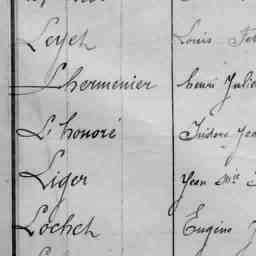 Leyet Louis
Lhermenier henri Julie
L'honoré Isidore Jea
Liger Jean
Lochet Eugène